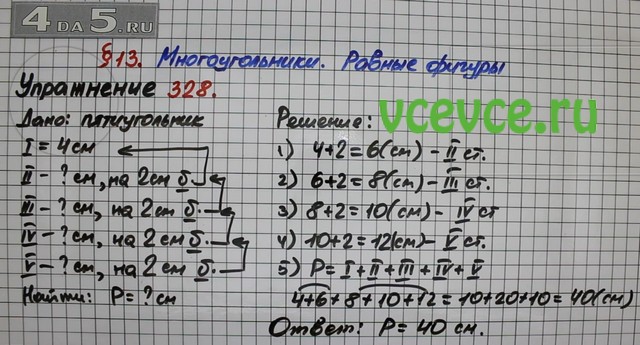 4 DA 5.RU
§13. Многоугольники. Равные фигуры
Упражнение 328.
vcevce.ru
Дано: пятиугольник
I = 4 см
II - ? см, на 2 см б.
III - ? см, на 2 см б.
IV - ? см, на 2 см б.
V - ? см, на 2 см б.
Найти: P = ? см
Решение:
1) 4+2=6(см) - II ст.
2) 6+2=8(см) - III ст.
3) 8+2=10(см) - IV ст
4) 10+2=12(см) - V ст.
5) P = I + II + III + IV + V
4+6+8+10+12=10+20+10=40(см)
Ответ: P = 40 см.